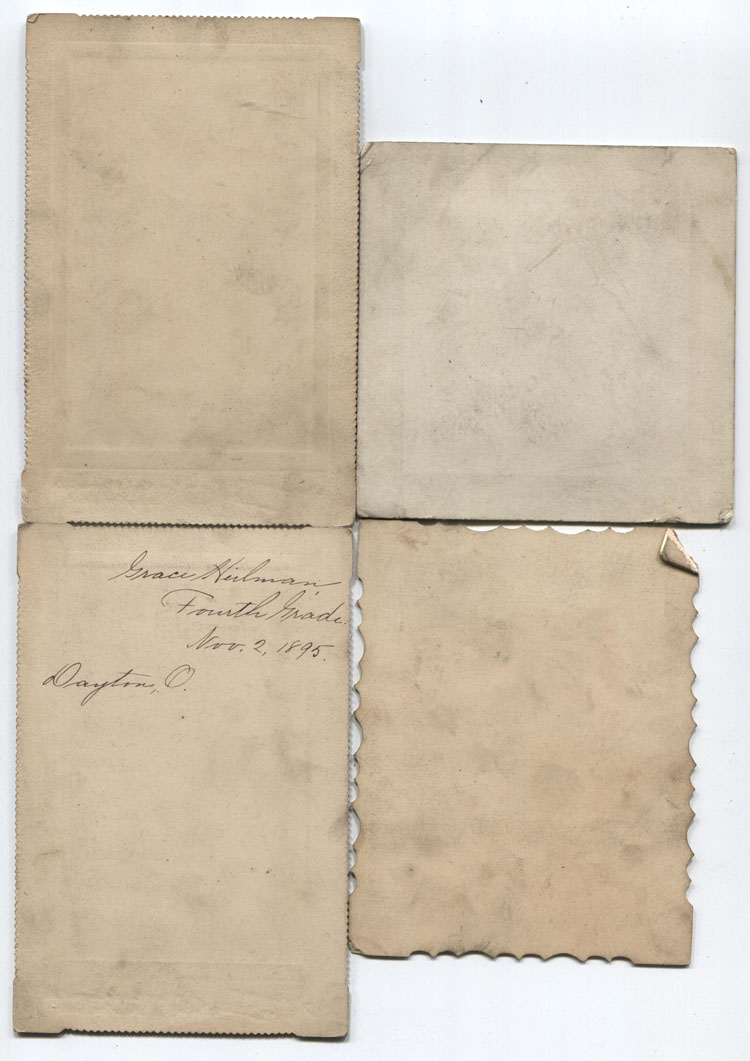 Grace Heilman
Fourth Grade.
Nov. 2, 1895.
Dayton, O.